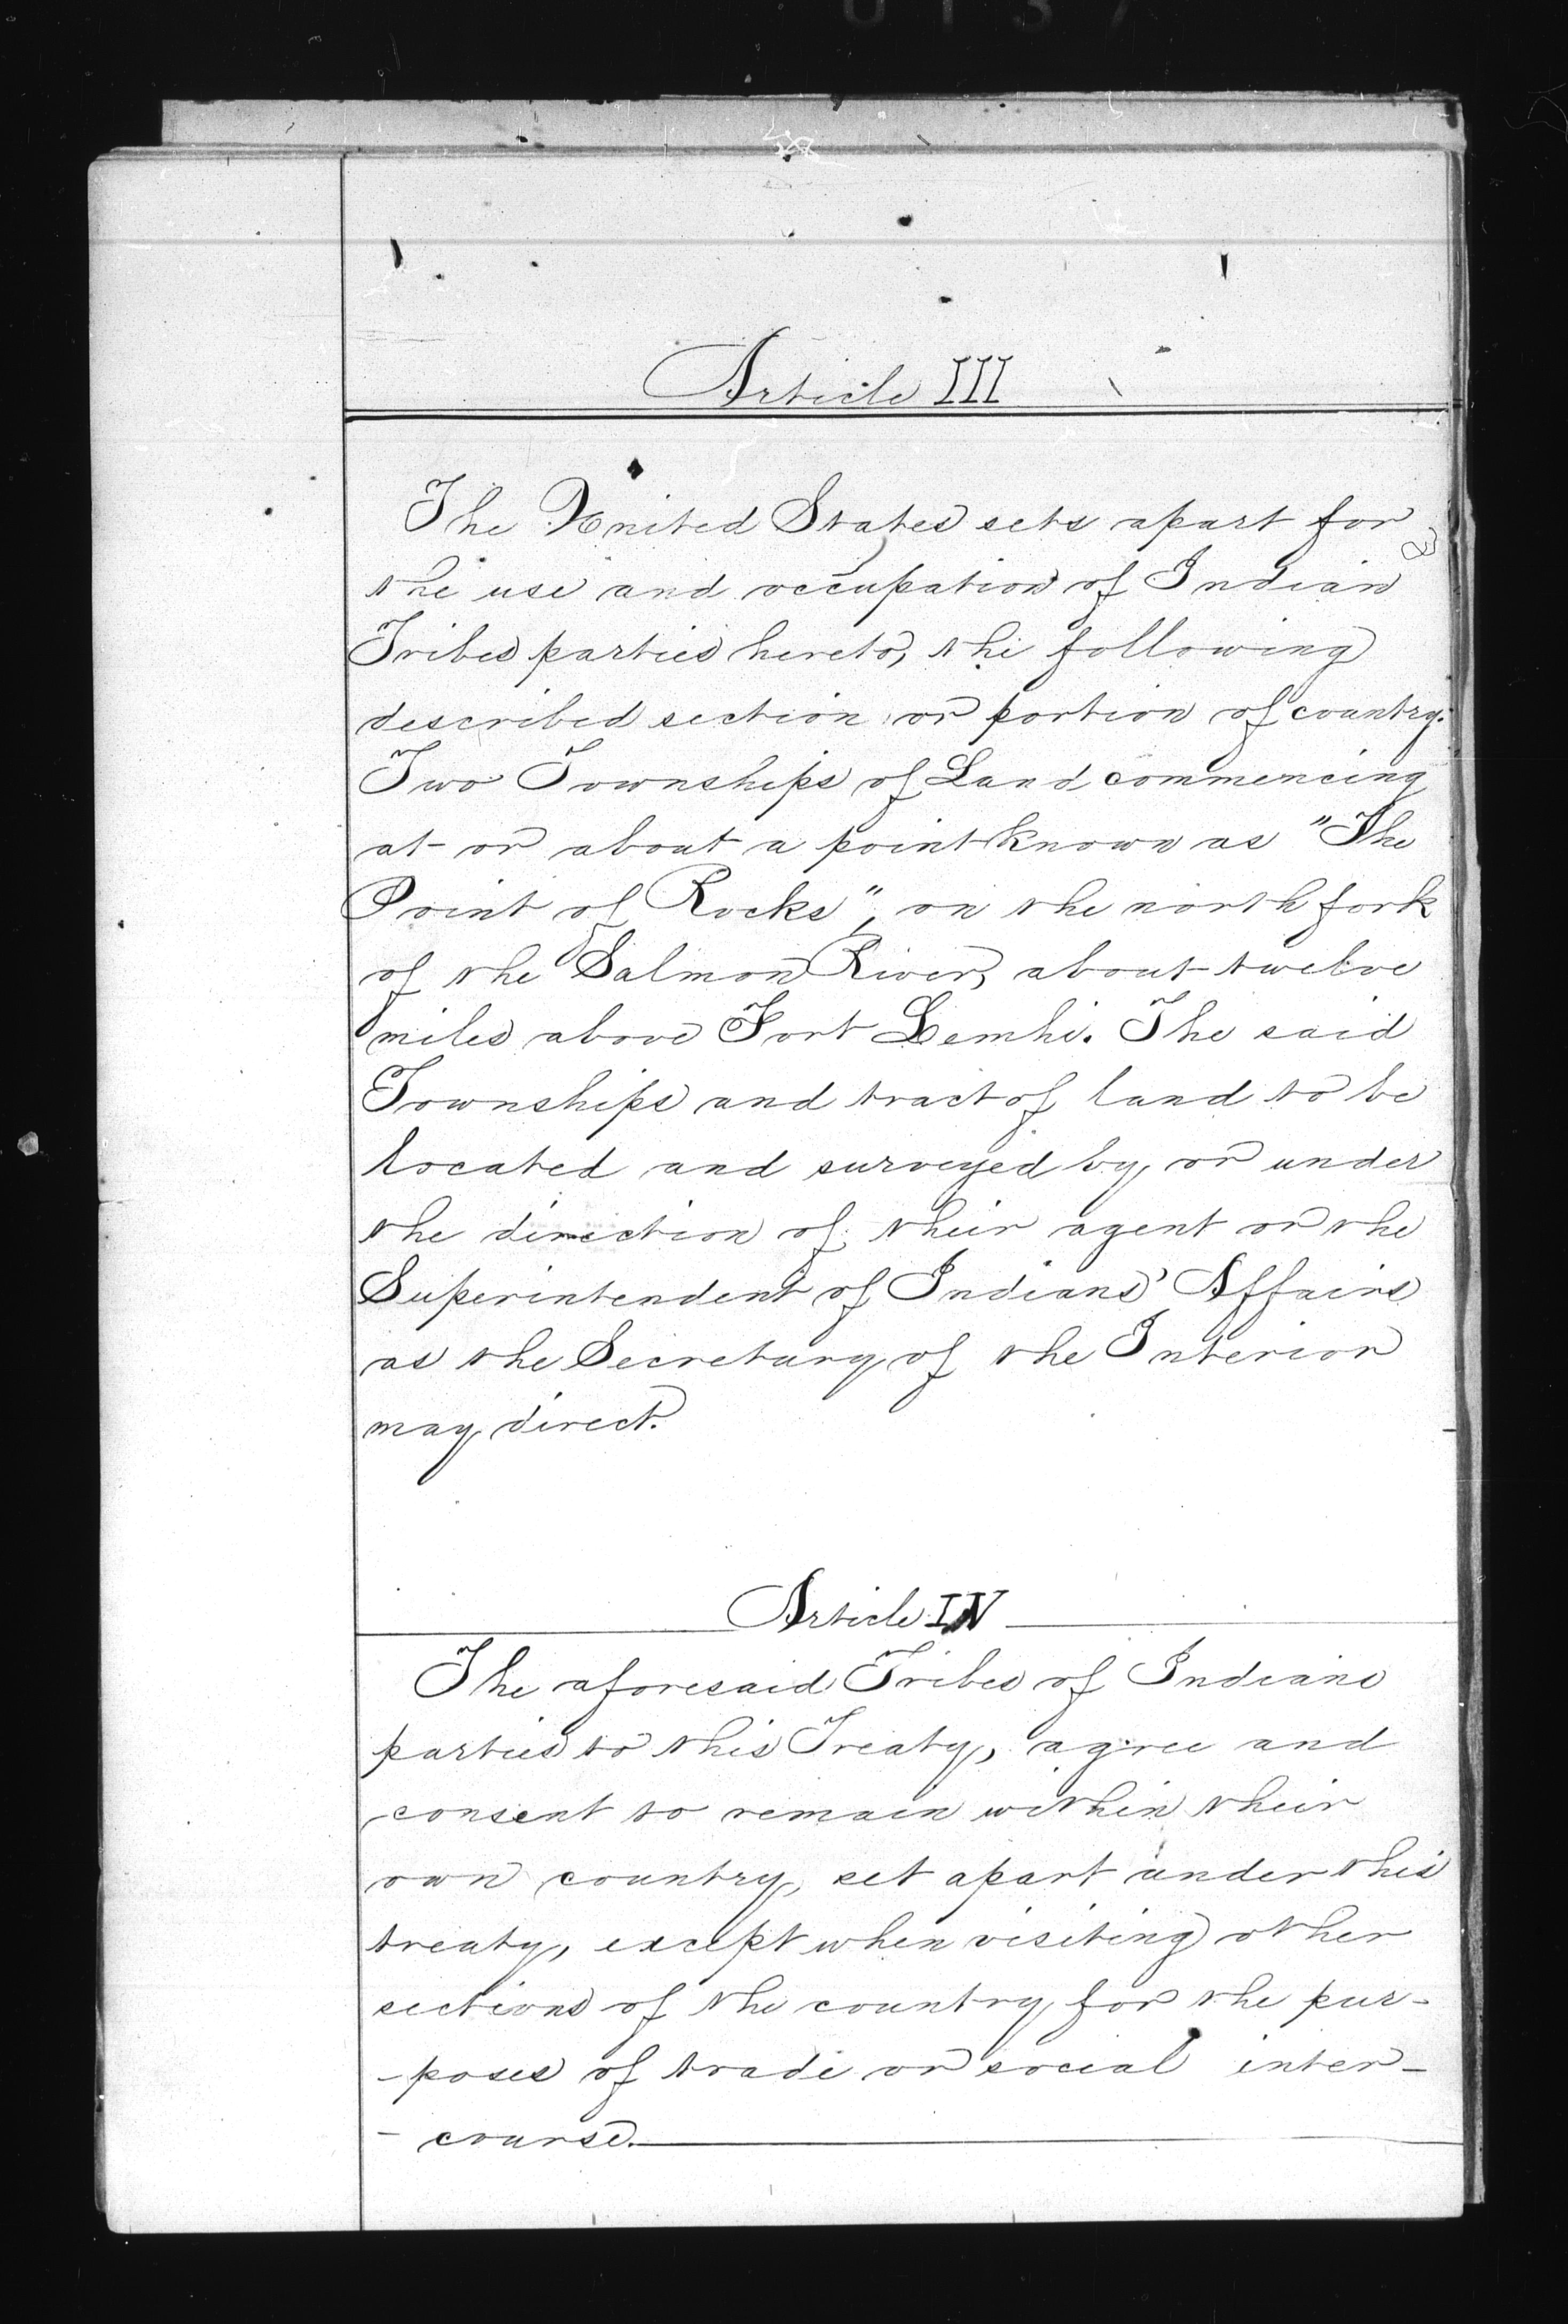 Article III
The United States sets apart for
the use and occupation of Indian
Tribes parties hereto, the following
described section or portion of country.
Two Townships of Land commencing
at or about a point known as "The
Point of Rocks", on the north fork
of the Salmon River, about twelve
miles above Fort Lemhi. The said
Townships and tract of land to be
located and surveyed by or under
the direction of their agent or the
Superintendent of Indians' Affairs
as the Secretary of the Interior
may direct.
Article IV
The aforesaid Tribes of Indians
parties to this Treaty, agree and
consent to remain within their
own country, set apart under this
treaty, except when visiting other
sections of the country for the pur-
-poses of trade or social inter-
- course.